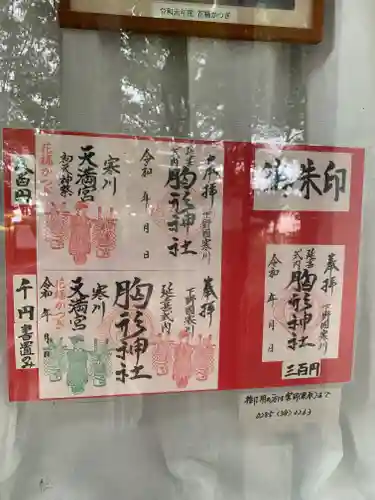 令和元年度 花桶かつぎ
御朱印
奉拝 下野国寒川
延喜式内
胸形神社
令和 年 月 日
寒川
天満宮
初午神祭
花桶かつぎ
百円
奉拝 下野国寒川
延喜式内
胸形神社
寒川
天満宮
花桶かつぎ
令和 年 月 日
千円 書置のみ
奉拝 下野国寒川
延喜式内
胸形神社
令和 年 月 日
三百円